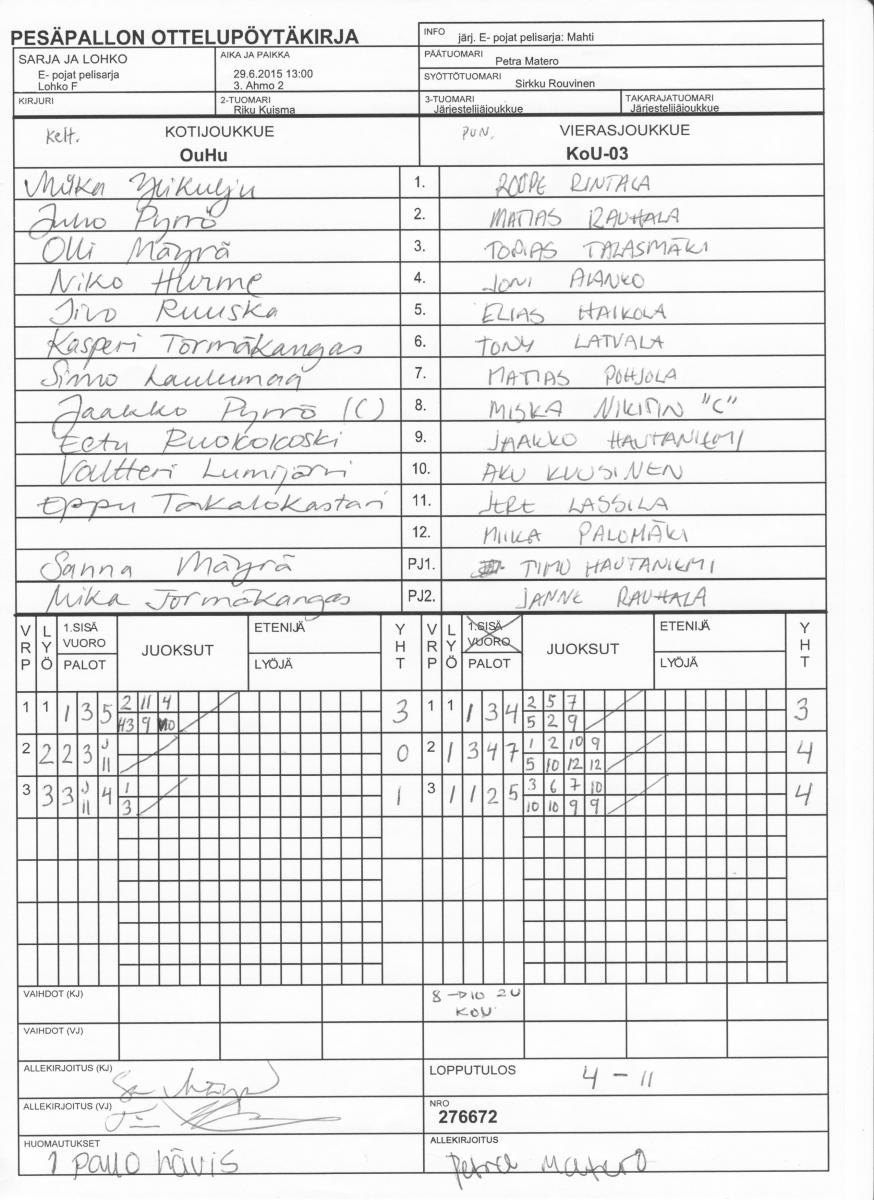 PESÄPALLON OTTELUPÖYTÄKIRJA
INFO järj. E- pojat pelisarja: Mahti
SARJA JA LOHKO
E- pojat pelisarja
Lohko F
AIKA JA PAIKKA
29.6.2015 13:00
3. Ahmo 2
PÄÄTUOMARI
Petra Matero
SYÖTTÖTUOMARI
Sirkku Rouvinen
KIRJURI
2-TUOMARI
Riku Kuisma
3-TUOMARI
Järjestelijäjoukkue
TAKARAJATUOMARI
Järjestelijäjoukkue
kelt. KOTIJOUKKUE
OuHu
PUN. VIERASJOUKKUE
KoU-03
Miika Ylikulju 1. ROOPE RINTALA
Juho Pyrrö 2. MATIAS RAUHALA
Olli Mäyrä 3. TOMAS TALASMÄKI
Niko Hurme 4. JONI ALANKO
Iivo Ruuska 5. ELIAS HAIKOLA
Kasperi Tormäkangas 6. TONY LATVALA
Simo Laulumaa 7. MATIAS POHJOLA
Jaakko Pyrrö (C) 8. MISKA NIKITIN "C"
Eetu Ruokokoski 9. JAAKKO HAUTANIEMI
Valtteri Lumijärvi 10. AKU KUUSINEN
Eppu Takalokastari 11. JERE LASSILA
12. MIIKA PALOMÄKI
Sanna Mäyrä PJ1. TIMO HAUTANIEMI
Mika Tormäkangas PJ2. JANNE RAUHALA
VRP LYÖ 1.SISÄ VUORO PALOT JUOKSUT ETENIJÄ LYÖJÄ YHT VRP LYÖ 1.SISÄ VUORO PALOT JUOKSUT ETENIJÄ LYÖJÄ YHT
1 1 1 3 5 2 11 4 3 1 1 1 3 4 2 5 7 3
9 10 5 2 9
2 2 2 3 J 11 0 2 1 3 4 7 1 2 10 9 4
5 10 12 12
3 3 3 J 11 4 1 1 3 1 1 2 5 3 6 7 10 4
3 10 10 9 9
VAIHDOT (KJ) 8 → 10 2V
KOU
VAIHDOT (VJ)
ALLEKIRJOITUS (KJ)
LOPPUTULOS 4 - 11
ALLEKIRJOITUS (VJ)
NRO
276672
HUOMAUTUKSET
1 pallo hävis
ALLEKIRJOITUS
Petra Matero